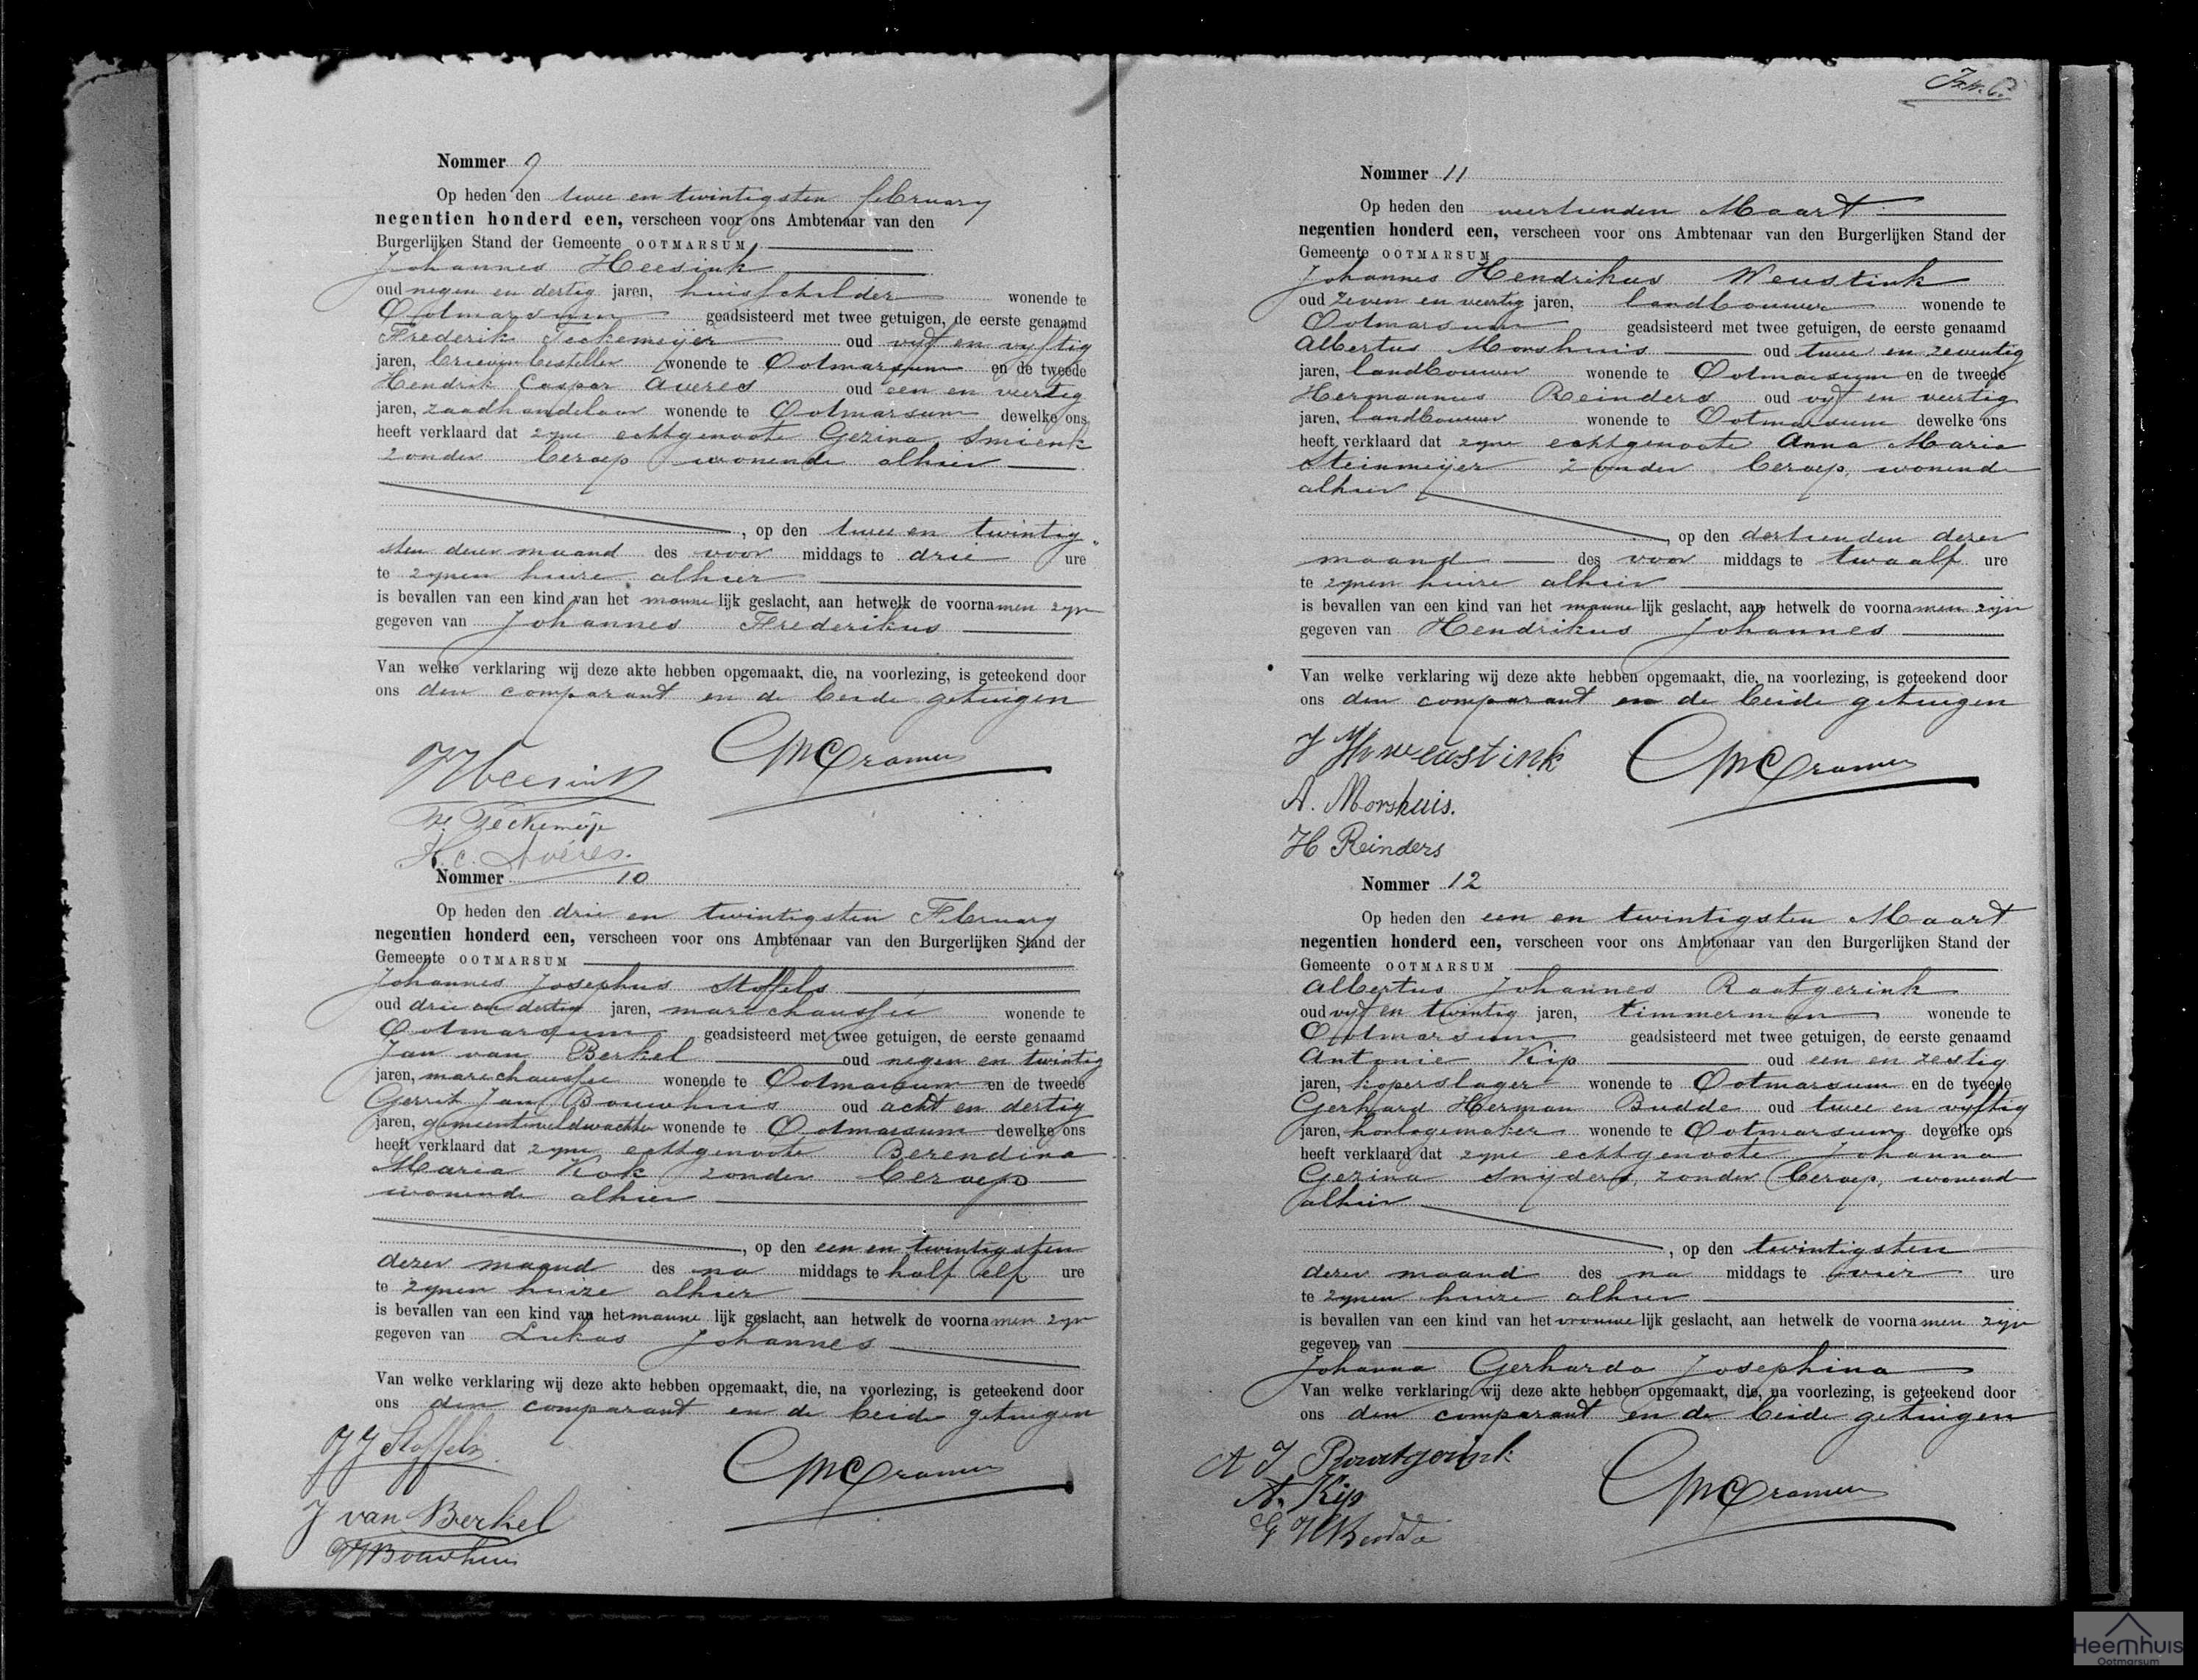 Nommer 9
Op heden den twee en twintigsten february
negentien honderd een, verscheen voor ons Ambtenaar van den
Burgerlijken Stand der Gemeente OOTMARSUM
Johannes Heesink
oud negen en dertig jaren, huisschilder wonende te
Ootmarsum geadsisteerd met twee getuigen, de eerste genaamd
Frederik Teckemeijer oud vijf en vijftig
jaren, brievenbesteller wonende te Ootmarsum en de tweede
Hendrik Caspar Averes oud een en veertig
jaren, zaadhandelaar wonende te Ootmarsum dewelke ons
heeft verklaard dat zyne echtgenoote Gezina Smienk
zonder beroep wonende alhier
, op den twee en twintig
sten dezer maand des voor middags te drie ure
te zynen huize alhier
is bevallen van een kind van het manne lijk geslacht, aan hetwelk de voornamen zyn
gegeven van Johannes Frederikus
Van welke verklaring wij deze akte hebben opgemaakt, die, na voorlezing, is geteekend door
ons den comparant en de beide getuigen
JHeesink CMCramer
Fr. Teckemeijer
H.C. Averes.
Nommer 10
Op heden den drie en twintigsten February
negentien honderd een, verscheen voor ons Ambtenaar van den Burgerlijken Stand der
Gemeente OOTMARSUM
Johannes Josephus Stoffels
oud drie en dertig jaren, marechaussee wonende te
Ootmarsum geadsisteerd met twee getuigen, de eerste genaamd
Jan van Berkel oud negen en twintig
jaren, marechaussee wonende te Ootmarsum en de tweede
Gerrit Jan Bouwhuis oud acht en dertig
jaren, gemeenteveldwachter wonende te Ootmarsum dewelke ons
heeft verklaard dat zyne echtgenoote Berendina
Maria Kok zonder beroep
wonende alhier
, op den een en twintigsten
dezer maand des na middags te half elf ure
te zynen huize alhier
is bevallen van een kind van het manne lijk geslacht, aan hetwelk de voornamen zyn
gegeven van Lukas Johannes
Van welke verklaring wij deze akte hebben opgemaakt, die, na voorlezing, is geteekend door
ons den comparant en de beide getuigen
JJ Stoffels CMCramer
J van Berkel
GJBouwhuis
Nommer 11
Op heden den veertienden Maart
negentien honderd een, verscheen voor ons Ambtenaar van den Burgerlijken Stand der
Gemeente OOTMARSUM
Johannes Hendrikus Weustink
oud zeven en veertig jaren, landbouwer wonende te
Ootmarsum geadsisteerd met twee getuigen, de eerste genaamd
Albertus Morshuis oud twee en zeventig
jaren, landbouwer wonende te Ootmarsum en de tweede
Hermannus Reinders oud vyf en veertig
jaren, landbouwer wonende te Ootmarsum dewelke ons
heeft verklaard dat zyne echtgenoote Anna Maria
Steinmeijer zonder beroep, wonende
alhier
, op den dertienden dezer
maand des voor middags te twaalf ure
te zynen huize alhier
is bevallen van een kind van het manne lijk geslacht, aan hetwelk de voornamen zijn
gegeven van Hendrikus Johannes
Van welke verklaring wij deze akte hebben opgemaakt, die, na voorlezing, is geteekend door
ons den comparant en de beide getuigen
J H Weustink CMCramer
A. Morshuis.
H Reinders
Nommer 12
Op heden den een en twintigsten Maart
negentien honderd een, verscheen voor ons Ambtenaar van den Burgerlijken Stand der
Gemeente OOTMARSUM
Albertus Johannes Raatgerink
oud vyf en twintig jaren, timmerman wonende te
Ootmarsum geadsisteerd met twee getuigen, de eerste genaamd
Antonie Kip oud een en zestig
jaren, koperslager wonende te Ootmarsum en de tweede
Gerhard Herman Budde oud twee en vyftig
jaren, horlogemaker wonende te Ootmarsum dewelke ons
heeft verklaard dat zyne echtgenoote Johanna
Gezina Snyders, zonder beroep, wonend
alhier
, op den twintigsten
dezer maand des na middags te vier ure
te zynen huize alhier
is bevallen van een kind van het vrouwe lijk geslacht, aan hetwelk de voornamen zijn
gegeven van
Johanna Gerharda Josephina
Van welke verklaring wij deze akte hebben opgemaakt, die, na voorlezing, is geteekend door
ons den comparant en de beide getuigen
A J Raatgerink CMCramer
A. Kip
G H Budde
Heemhuis
Ootmarsum